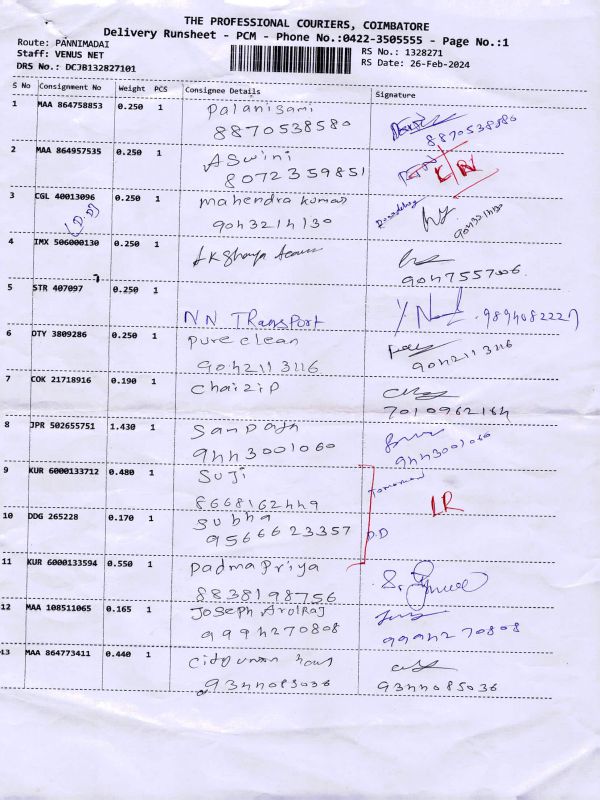 THE PROFESSIONAL COURIERS, COIMBATORE
Delivery Runsheet - PCM - Phone No.:0422-3505555 - Page No.:1
Route: PANNIMADAI
Staff: VENUS NET
DRS No.: DCJB132827101
RS No.: 1328271
RS Date: 26-Feb-2024
S No Consignment No Weight PCS Consignee Details Signature
1 MAA 864758853 0.250 1 Palanisami
8870538580 8870538580
2 MAA 864957535 0.250 1 ASwini
8072359851
3 CGL 40013096 0.250 1 mahendra kumar
(D.D) 9043214130 9043214130
4 IMX 506000130 0.250 1
9047557006
5 STR 407097 0.250 1
NN TRansport 9894082227
6 DTY 3809286 0.250 1 pure clean
9042113116 9042113116
7 COK 21718916 0.190 1 chaizip
7010962164
8 JPR 502655751 1.430 1 Sampath
9443001060 9443001060
9 KUR 6000133712 0.480 1 Suji
8668162449
10 DDG 265228 0.170 1 Subha
9566623357 D.D
11 KUR 6000133594 0.550 1 Padma Priya
8838198756
12 MAA 108511065 0.165 1 Joseph Arulraj
9994270808 9994270808
13 MAA 864773411 0.440 1
9344085036 9344085036